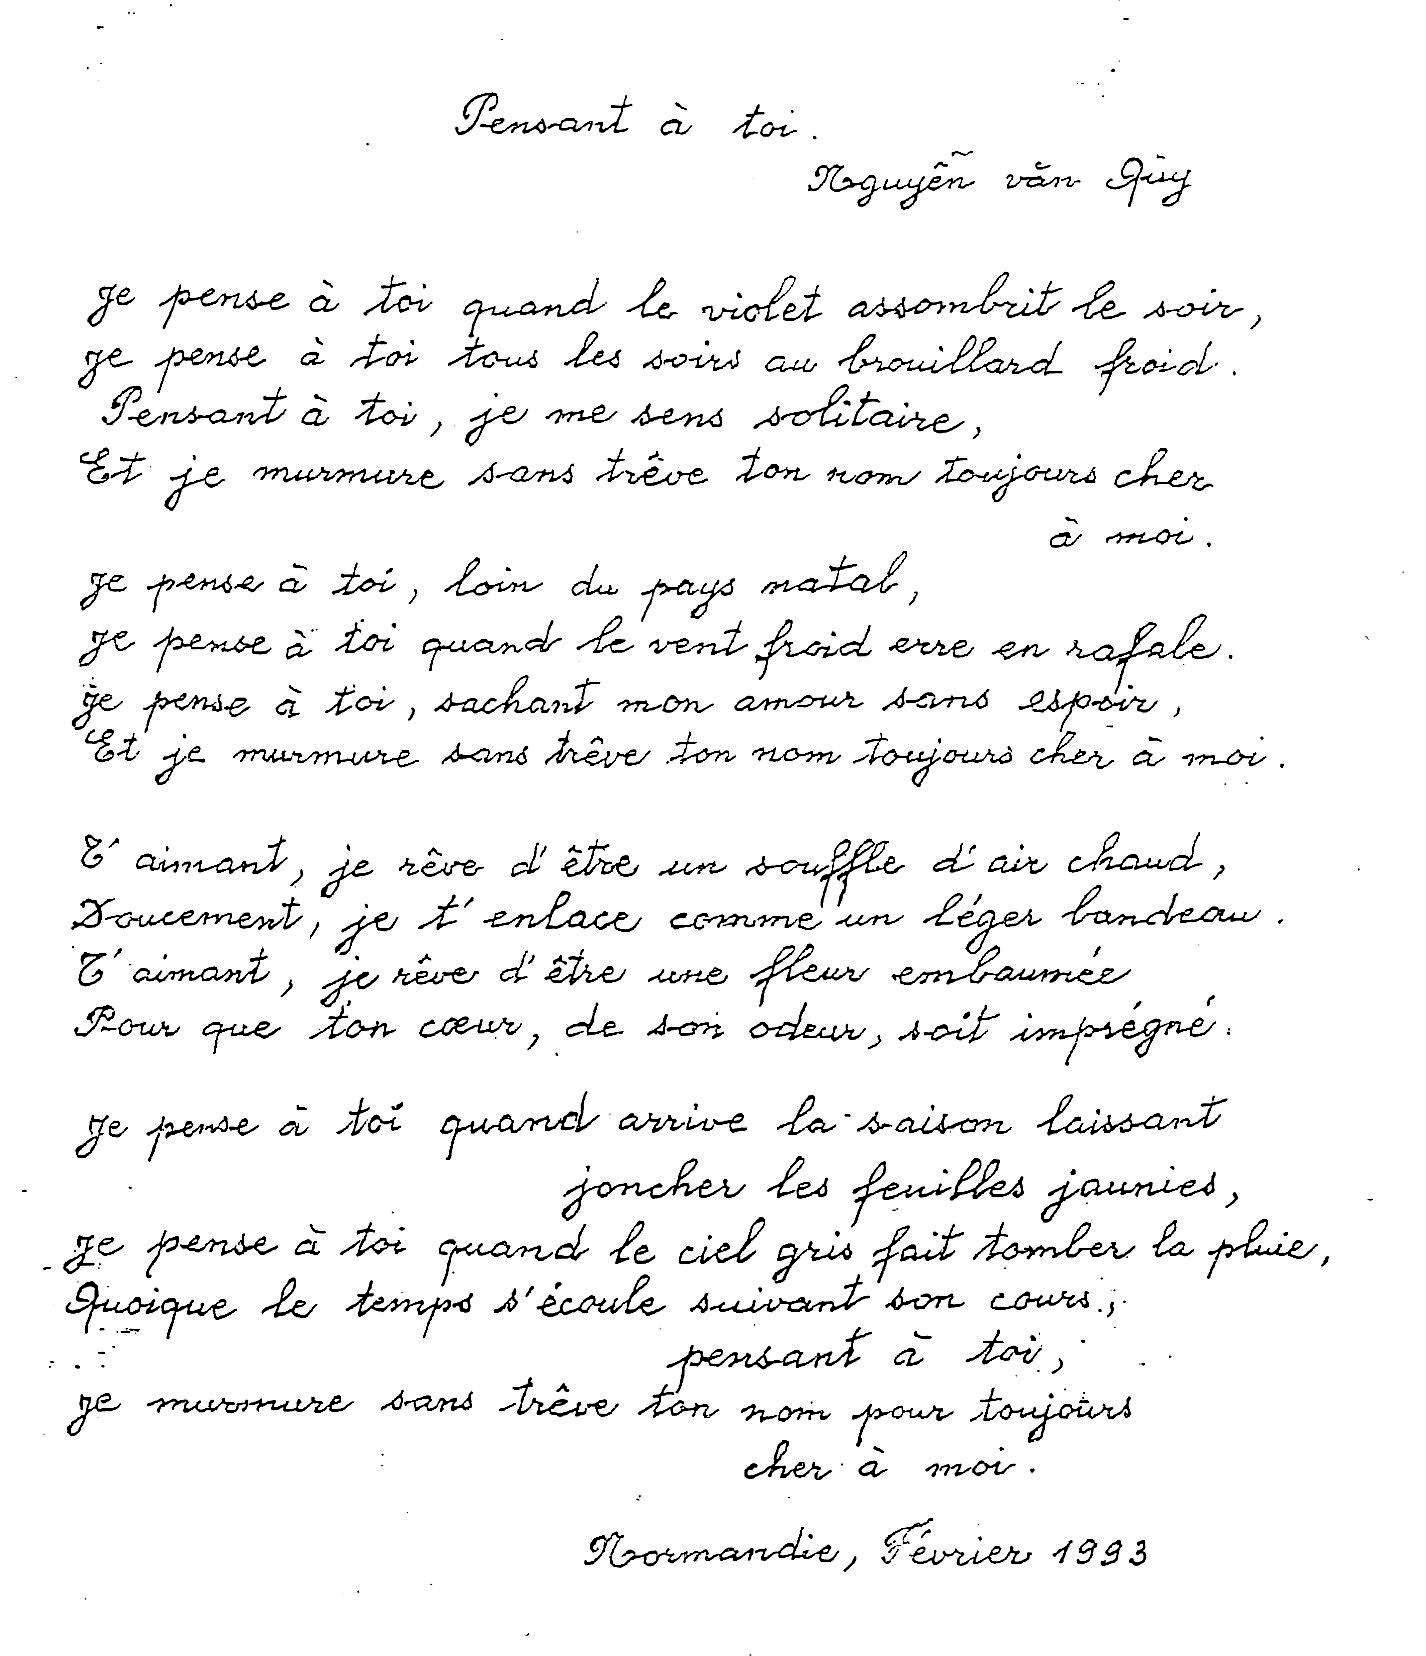 Pensant à toi.
Nguyễn văn Qùy
Je pense à toi quand le violet assombrit le soir,
Je pense à toi tous les soirs au brouillard froid.
Pensant à toi, je me sens solitaire,
Et je murmure sans trêve ton nom toujours cher
à moi.
Je pense à toi, loin du pays natal,
Je pense à toi quand le vent froid erre en rafale.
Je pense à toi, sachant mon amour sans espoir,
Et je murmure sans trêve ton nom toujours cher à moi.
T'aimant, je rêve d'être un souffle d'air chaud,
Doucement, je t'enlace comme un léger bandeau.
T'aimant, je rêve d'être une fleur embaumée
Pour que ton cœur, de son odeur, soit imprégné.
Je pense à toi quand arrive la saison laissant
joncher les feuilles jaunies,
Je pense à toi quand le ciel gris fait tomber la pluie,
Quoique le temps s'écoule suivant son cours,
pensant à toi,
Je murmure sans trêve ton nom pour toujours
cher à moi.
Normandie, Février 1993